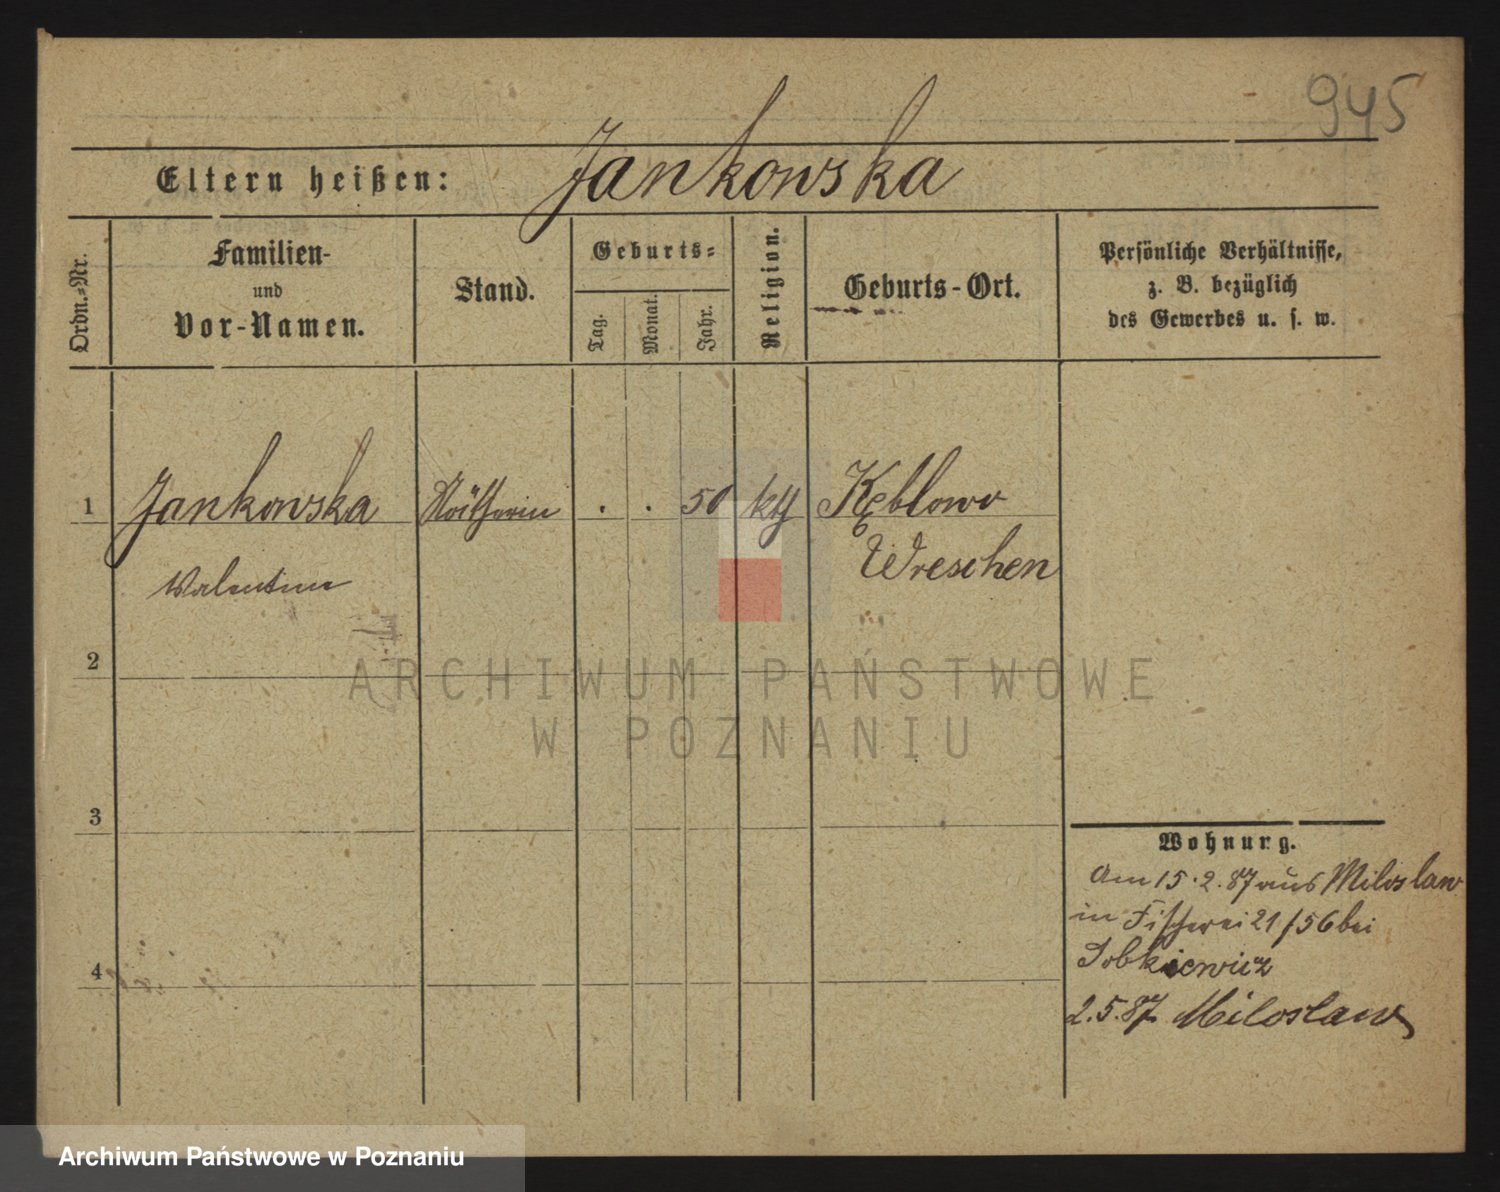 945
Eltern heißen: Jankowska
Ordn.-Nr.
Familien-
und
Vor-Namen.
Stand.
Geburts-
Tag.
Monat.
Jahr.
Religion.
Geburts-Ort.
Persönliche Verhältnisse,
z. B. bezüglich
des Gewerbes u. s. w.
1 Jankowska . . 50 kth Kębłowo
Wreschen
Valentine
2
3
4
Wohnung.
Am 15.2.87 aus Miloslaw
in Fischerei 21/56 bei
Sobkiewicz
2.5.87 Miloslaw
ARCHIWUM PAŃSTWOWE
W POZNANIU
Archiwum Państwowe w Poznaniu